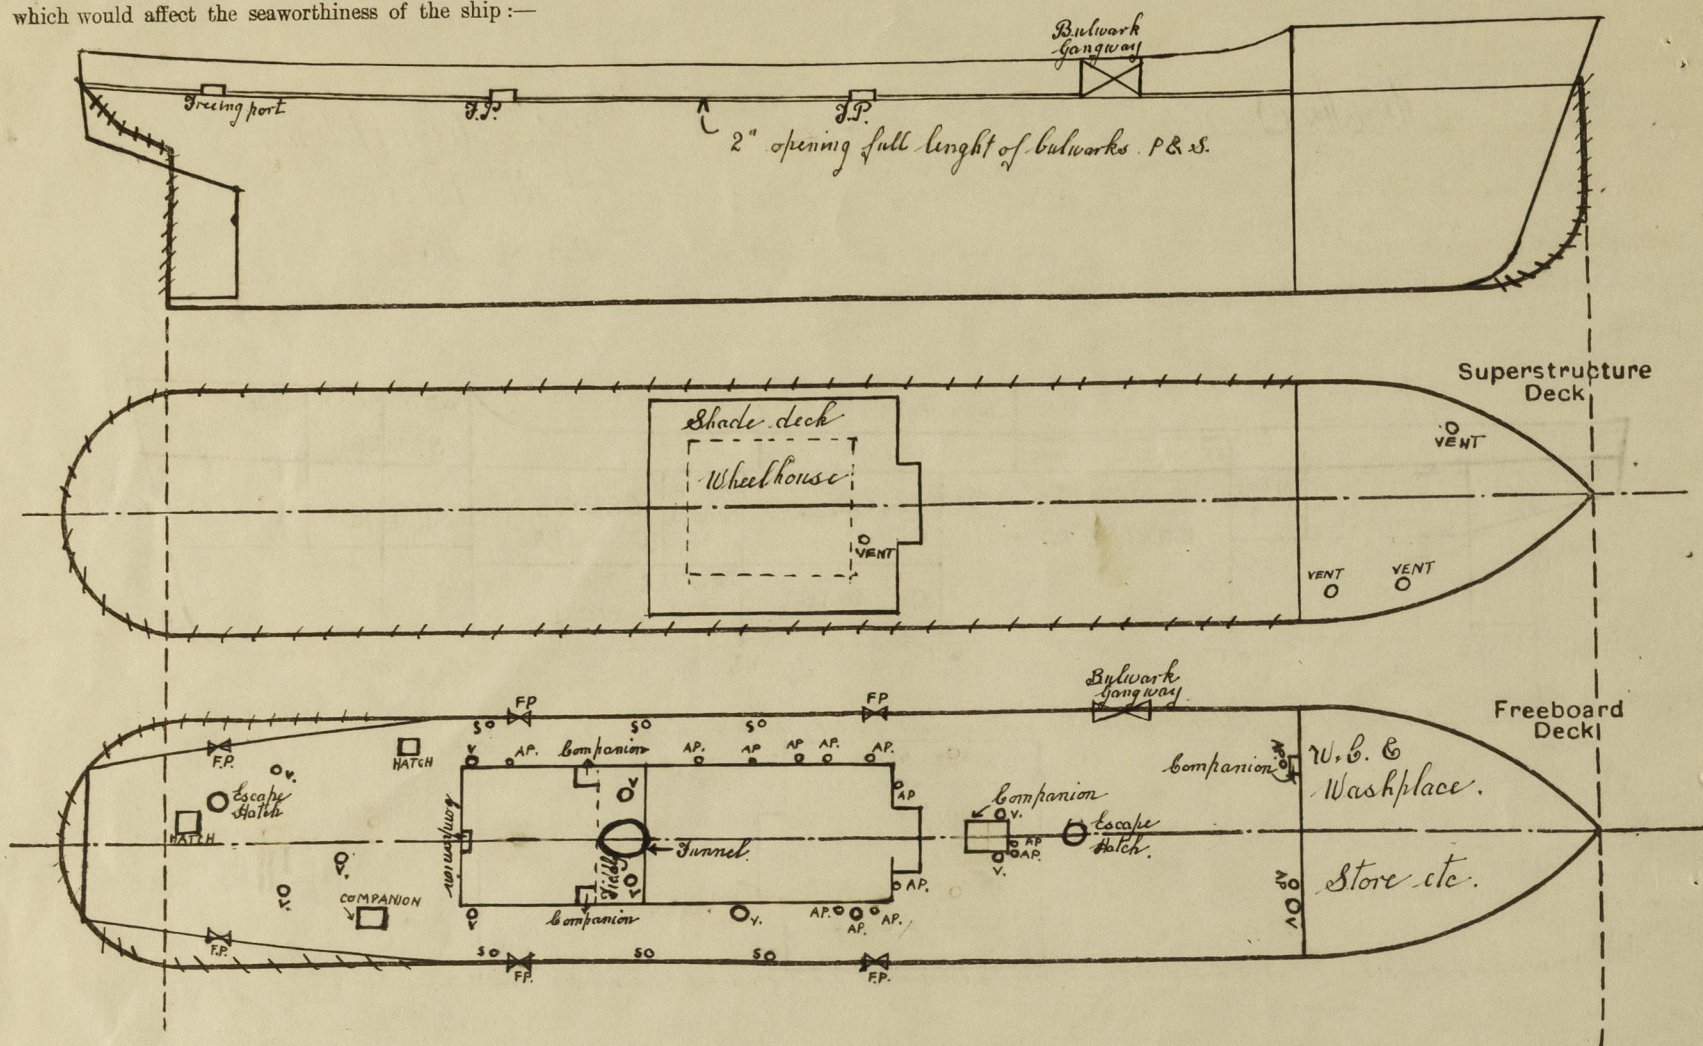 which would affect the seaworthiness of the ship :—
Bulwark
Gangway
Freeing port
F.P.
F.P.
2" opening full lenght of bulwarks. P & S.
Superstructure
Deck
Shade deck
VENT
Wheelhouse
VENT
VENT
VENT
Bulwark
Gangway
FP
FP
Freeboard
Deck
S
S
S
F.P.
HATCH
V
AP.
Companion
AP.
AP
AP
AP.
AP.
Companion
AP
W.C. &
Washplace.
V.
Escape
Hatch
V
AP
Companion
V.
HATCH
Companion
Fiddly
Funnel.
AP
AP.
Escape
Hatch.
V.
V.
V.
COMPANION
V
V
Companion
V.
AP.
AP.
AP.
AP.
AP
V
Store etc.
F.P.
S
S
S
FP.
F.P.